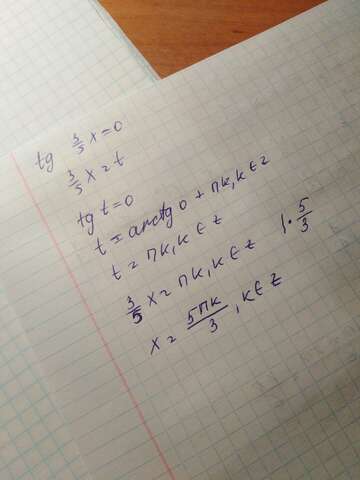 tg 3/5 x = 0
3/5 x = t
tg t = 0
t = arctg 0 + πк, к ∈ z
t = πк, к ∈ z
3/5 x = πк, к ∈ z | · 5/3
x = 5πк/3, к ∈ z